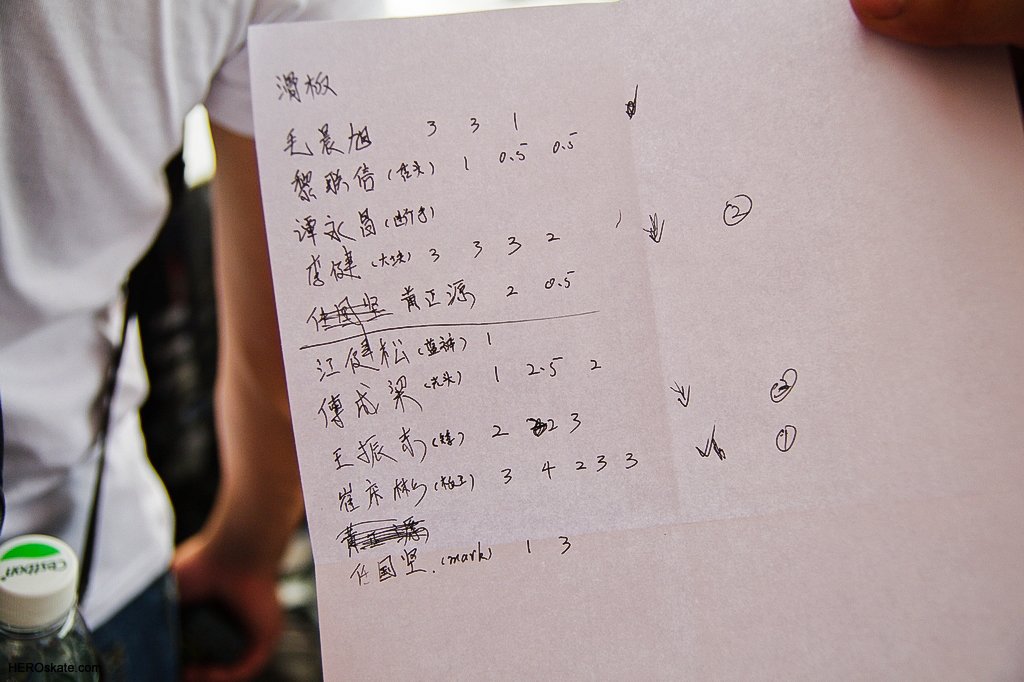 滑板
毛晨旭 3 3 1
黎联信(舌头) 1 0.5 0.5
谭永昌(断手)
李健(大块) 3 3 3 2 ②
任国坚 黄正源 2 0.5
江健松(蓝裤) 1
傅成梁(光头) 1 2.5 2
王振 2 2 3 ③
崔庆彬(板王) 3 4 2 3 3 ①
黄正源
任国坚.(mark) 1 3
C'estbon
HEROskate.com